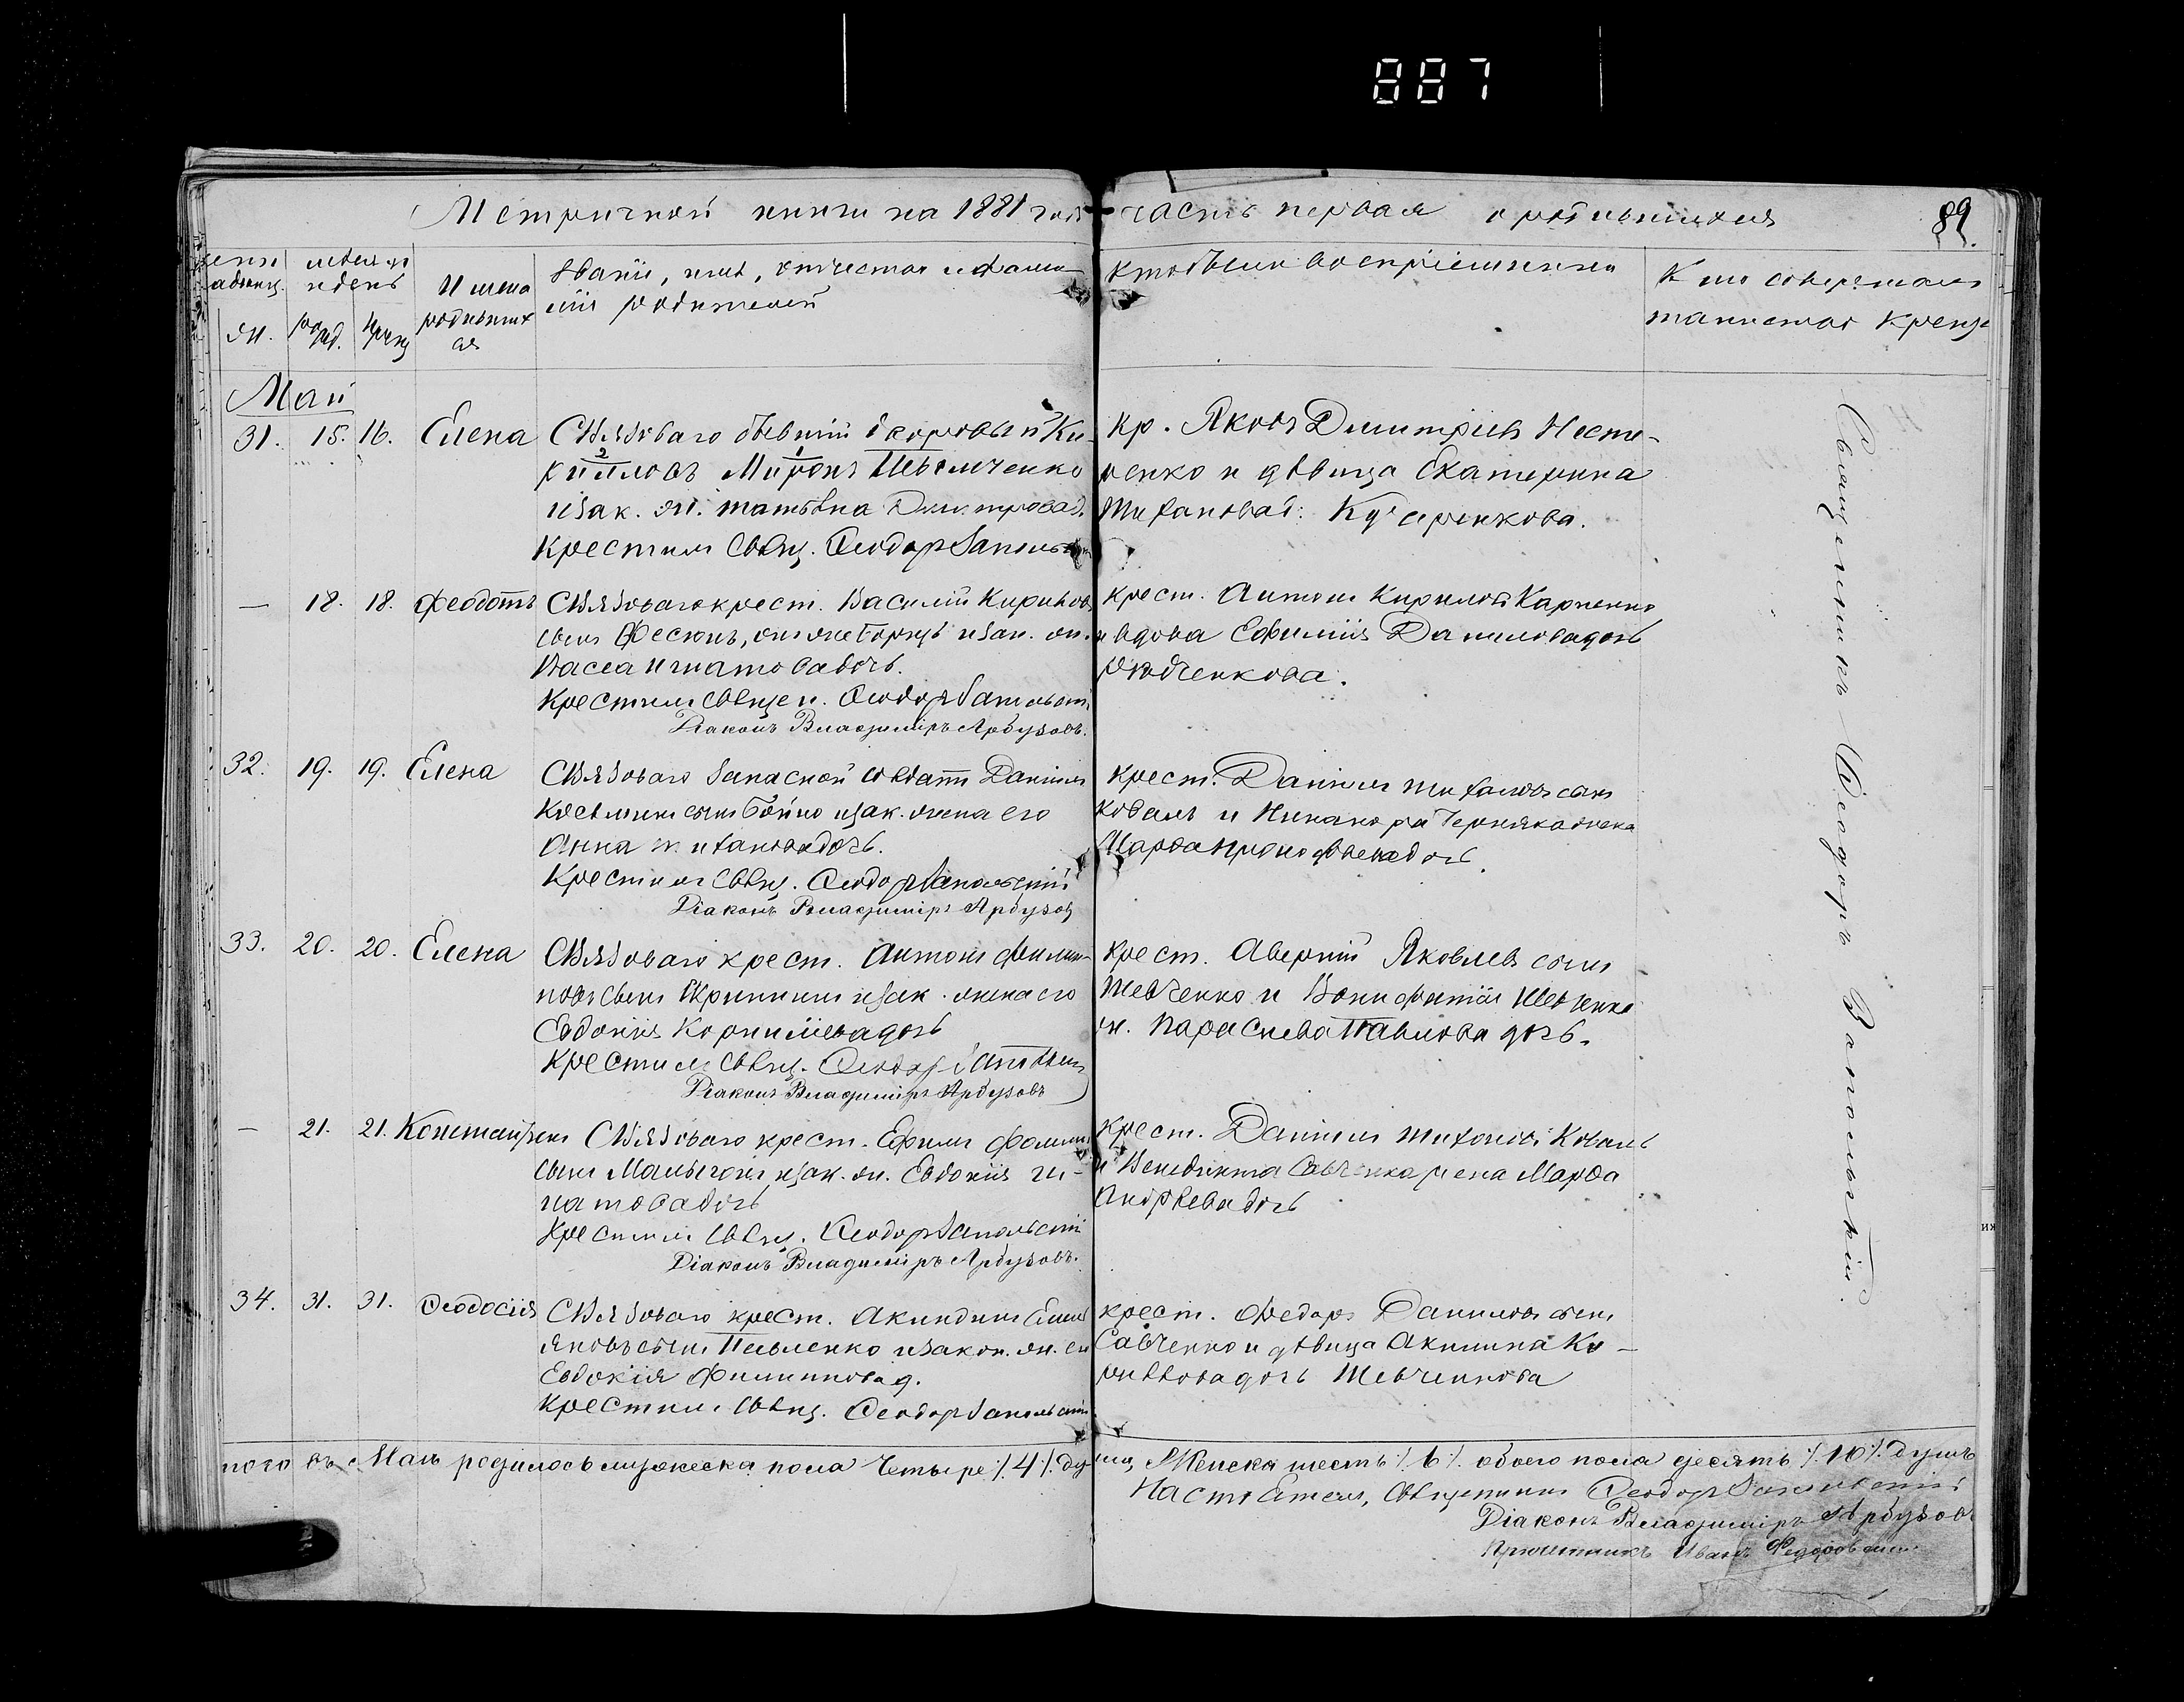 887
Метричной книги на 1881 годъ часть первая о родившихся
89.
мѣсяцъ и день
Имена родившихся
Званіе, имя, отчество и фамилія родителей
Кто были воспріемники
Кто совершалъ таинство крещ
Май
31. 15. 16. Елена
С Вязоваго бывшій дворовый Ки-
рилловъ Миронъ Шевченко
и зак. ж. татьяна Дмитрова д.
Крестилъ Свящ. Ѳеодоръ Запольскій
кр. Яковъ Димитріевъ Несте-
ренко и дѣвица Екатерина
Тиханова д.
— 18. 18. Феодотъ
С Вязоваго крест. Василій Кириловъ
сынъ Фесюнъ, и зак. ж.
Васса Игнатова дочь.
Крестилъ Священ. Ѳеодоръ Запольскій
Діаконъ Владиміръ Арбузовъ.
крест. Антонъ Кириловъ Карпенко
и вдова Ефимія Данилова дочь
32. 19. 19. Елена
С Вязоваго запасной солдатъ Даніилъ
Косьминъ сынъ Бойко и зак. жена его
Анна тиханова дочь.
Крестилъ Свящ. Ѳеодоръ Запольскій
Діаконъ Владиміръ Арбузовъ
крест. Даніилъ тихановъ сынъ
Коваль и Никанора Черняка жена
Марѳа дочь.
33. 20. 20. Елена
С Вязоваго крест. Антонъ филип-
повъ сынъ Скрипкинъ и зак. жена его
Евдокія Корниліева дочь
Крестилъ Свящ. Ѳеодоръ Запольскій
Діаконъ Владиміръ Арбузовъ
крест. Аверкій Яковлевъ сынъ
Шевченко и Вонифатія Шевченко
ж. Параскева Павлова дочь.
— 21. 21. Константинъ
С Вязоваго крест. Ефимъ фоминъ
сынъ и зак. ж. Евдокія Иг-
натова дочь
Крестилъ Свящ. Ѳеодоръ Запольскій
Діаконъ Владиміръ Арбузовъ.
крест. Даніилъ тихоновъ Коваль
и Венедикта Савченка жена Марѳа
Андрѣева дочь
34. 31. 31. Ѳеодосія
С Вязоваго крест. Акиндинъ Емель
яновъ сынъ Павленко и закон. ж. его
Евдокія Филиппова д.
Крестилъ Свящ. Ѳеодоръ Запольскій
крест. Федоръ Даниловъ сынъ
Савченко и дѣвица Акилина Ки-
рилова дочь Шевченкова
Священникъ Ѳеодоръ Запольскій.
Всего въ Маѣ родилось мужеска пола Четыре %4% душ, Женска шесть %6% обоего пола десять %10% душъ
Настоятель, Священникъ Ѳеодоръ Запольскій
Діаконъ Владиміръ Арбузовъ
Причетникъ Иванъ Федоровскій